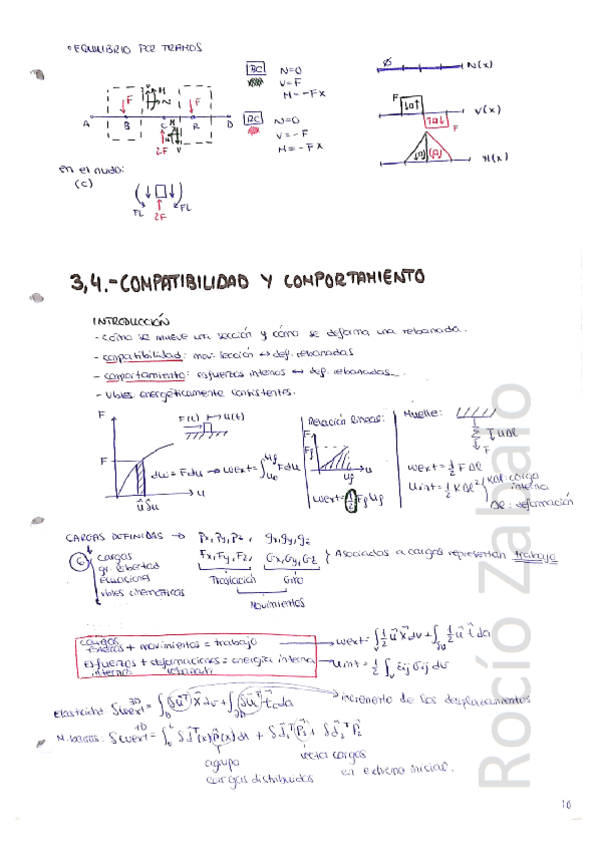 • EQUILIBRIO POR TRAMOS
BC N=0
V=F
M=-Fx
N(x)
F F
A B C R D
2F
N=0
V=-F
M=-Fx
F
V(x)
F
M(x)
en el nudo:
(C)
FL 2F FL
3,4.-COMPATIBILIDAD Y COMPORTAMIENTO
INTRODUCCIÓN
- cómo se mueve una sección y cómo se deforma una rebanada.
- compatibilidad: mov. sección ↔ def. rebanadas
- comportamiento: esfuerzos internos ↔ def. rebanadas
- vbles energéticamente consistentes.
F F(t) u(t)
F
dw=Fdu → wext=∫Fdu
u δu u
Relación lineal:
F
Ff
uf u
wext=½ Ff uf
Muelle:
uΔl
F
wext=½ FΔl
uint=½ KΔl²
KΔl: carga interna
Δl: deformación
CARGAS DEFINIDAS → Px, Py, Pz, qx, qy, qz
Fx, Fy, Fz, Gx, Gy, Gz } Asociadas a cargas representan trabajo
6 cargas
gr. libertad
ecuaciones
vbles cinemáticas
Traslación Giro
Movimientos
cargas externas + movimientos = trabajo
esfuerzos internos + deformaciones = energía interna
wext=∫ ½ u X dv + ∫ ½ u t da
uint=½ ∫ εij σij dv
Elasticidad 3D δwext = ∫ δuᵀ X dv + ∫ δuᵀ t da → incremento de los desplazamientos
M. barras: 1D δwext = ∫ δdᵀ(x) p(x) dx + δd₁ᵀ P₁ + δd₂ᵀ P₂
agrupa cargas distribuidas
vector cargas en extremo inicial.
Rocío Zabalo
10